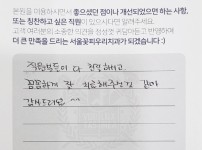 본원을 이용하시면서 좋으셨던 점이나 개선되었으면 하는 사항,
또는 칭찬하고 싶은 직원이 있으시다면 알려주세요.
고객 여러분의 소중한 의견을 정성껏 귀담아듣고 반영하여
더 큰 만족을 드리는 서울꽃피우리치과가 되겠습니다 :)
직원분들이 다 친절하고
꼼꼼하게 잘 치료해주셔서 감사
감사드려요 ^^